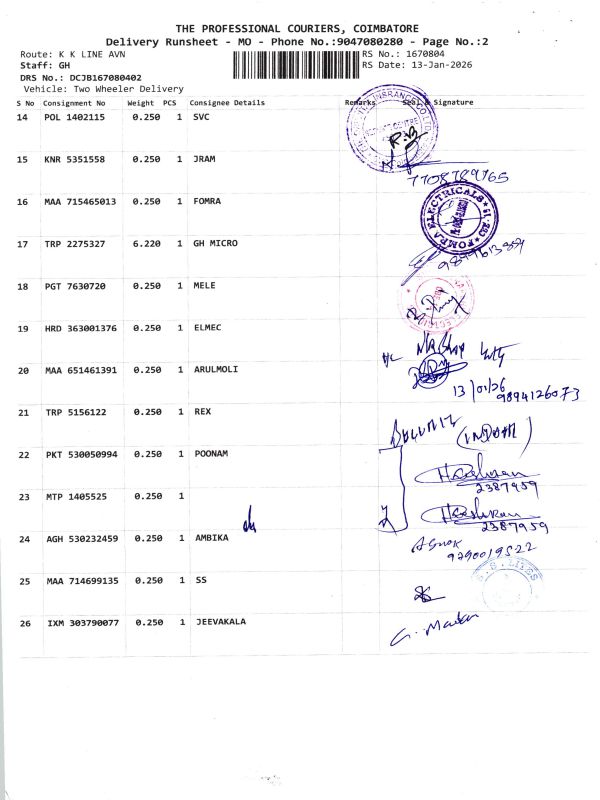 THE PROFESSIONAL COURIERS, COIMBATORE
Delivery Runsheet - MO - Phone No.:9047080280 - Page No.:2
Route: K K LINE AVN RS No.: 1670804
Staff: GH RS Date: 13-Jan-2026
DRS No.: DCJB167080402
Vehicle: Two Wheeler Delivery
S No Consignment No Weight PCS Consignee Details Remarks Seal & Signature
14 POL 1402115 0.250 1 SVC
15 KNR 5351558 0.250 1 JRAM
7708789765
16 MAA 715465013 0.250 1 FOMRA
FOMRA ELECTRICALS
17 TRP 2275327 6.220 1 GH MICRO
18 PGT 7630720 0.250 1 MELE
19 HRD 363001376 0.250 1 ELMEC
20 MAA 651461391 0.250 1 ARULMOLI
13/01/26
9894126073
21 TRP 5156122 0.250 1 REX
22 PKT 530050994 0.250 1 POONAM
2387959
23 MTP 1405525 0.250 1
2387959
24 AGH 530232459 0.250 1 AMBIKA
ASHOK
9290019522
25 MAA 714699135 0.250 1 SS
26 IXM 303790077 0.250 1 JEEVAKALA